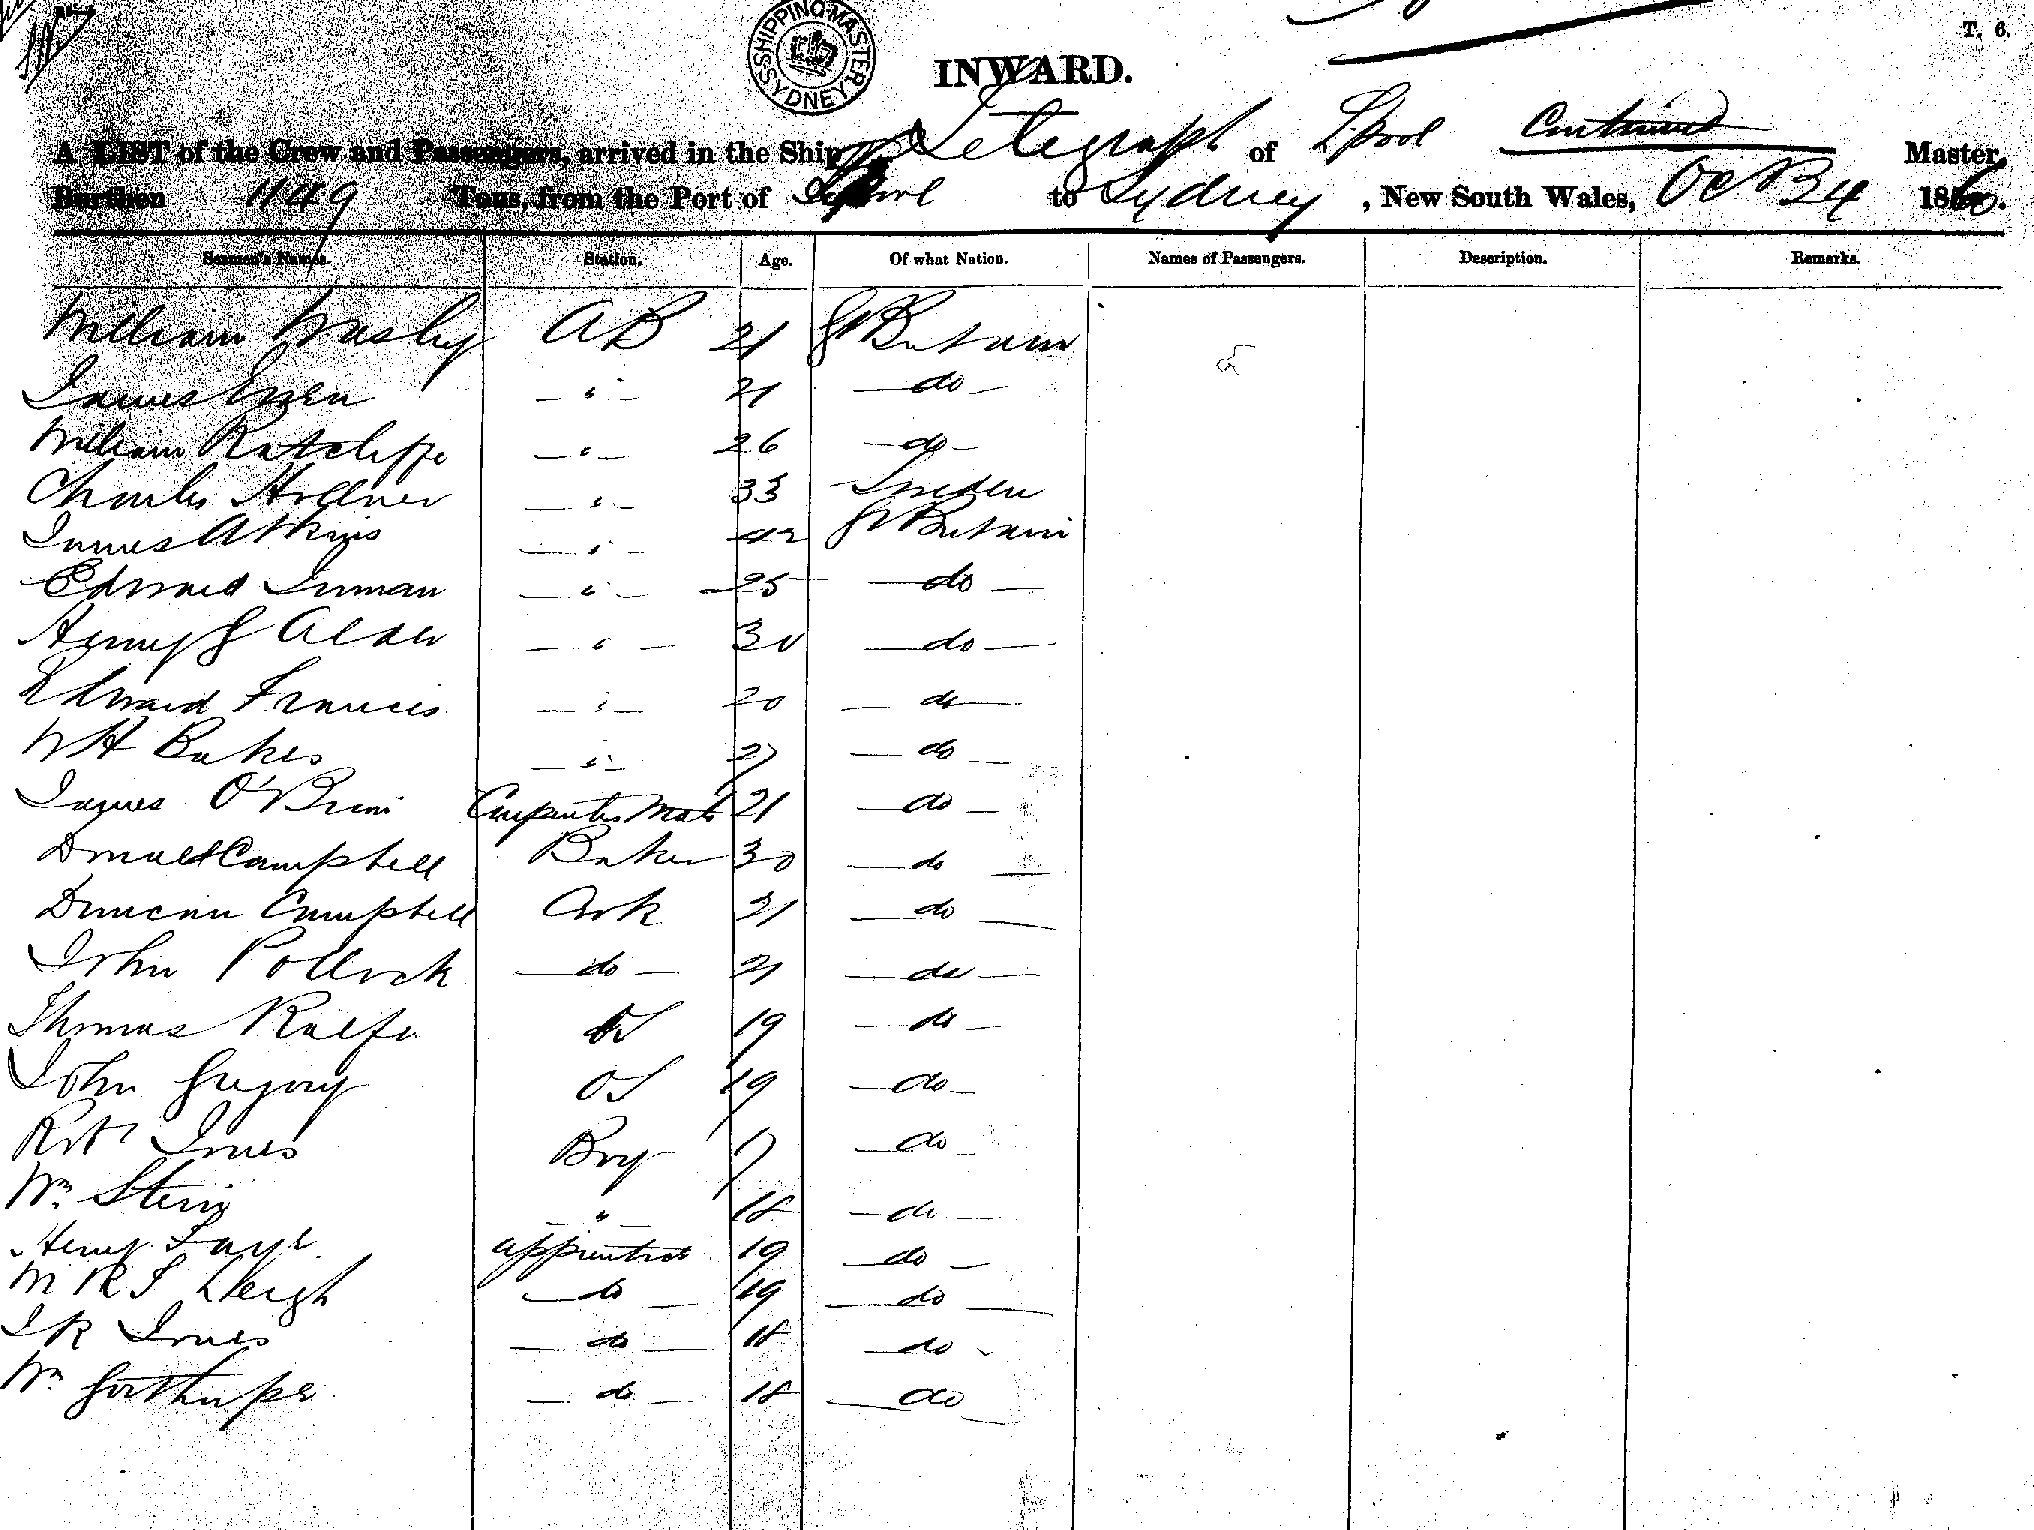 T. 6.
SHIPPING MASTER SYDNEY
INWARD.
A LIST of the Crew and Passengers, arrived in the Ship Telegraph of Lpool Continued Master,
Burthen 1149 Tons, from the Port of Lpool to Sydney, New South Wales, Oct 1860.
Seamen's Names. Station. Age. Of what Nation. Names of Passengers. Description. Remarks.
William AB 21 Gt Britain
James " 21 do
William Ratcliffe " 26 do
Charles " 33 Sweden
James Atkins " 42 Gt Britain
Edward Inman " 25 do
Henry G Alder " 30 do
Edward Francis " 20 do
W H Baker " 27 do
James O'Brien Carpenters Mate 21 do
Donald Campbell Baker 30 do
Duncan Campbell Cook 21 do
John Pollock do 21 do
Thomas Ralfe OS 19 do
John Gregory OS 19 do
Robt Jones Boy 17 do
Wm " 18 do
Henry apprentice 19 do
Leigh do 19 do
J R Jones do 18 do
Wm Gorthorpe do 18 do